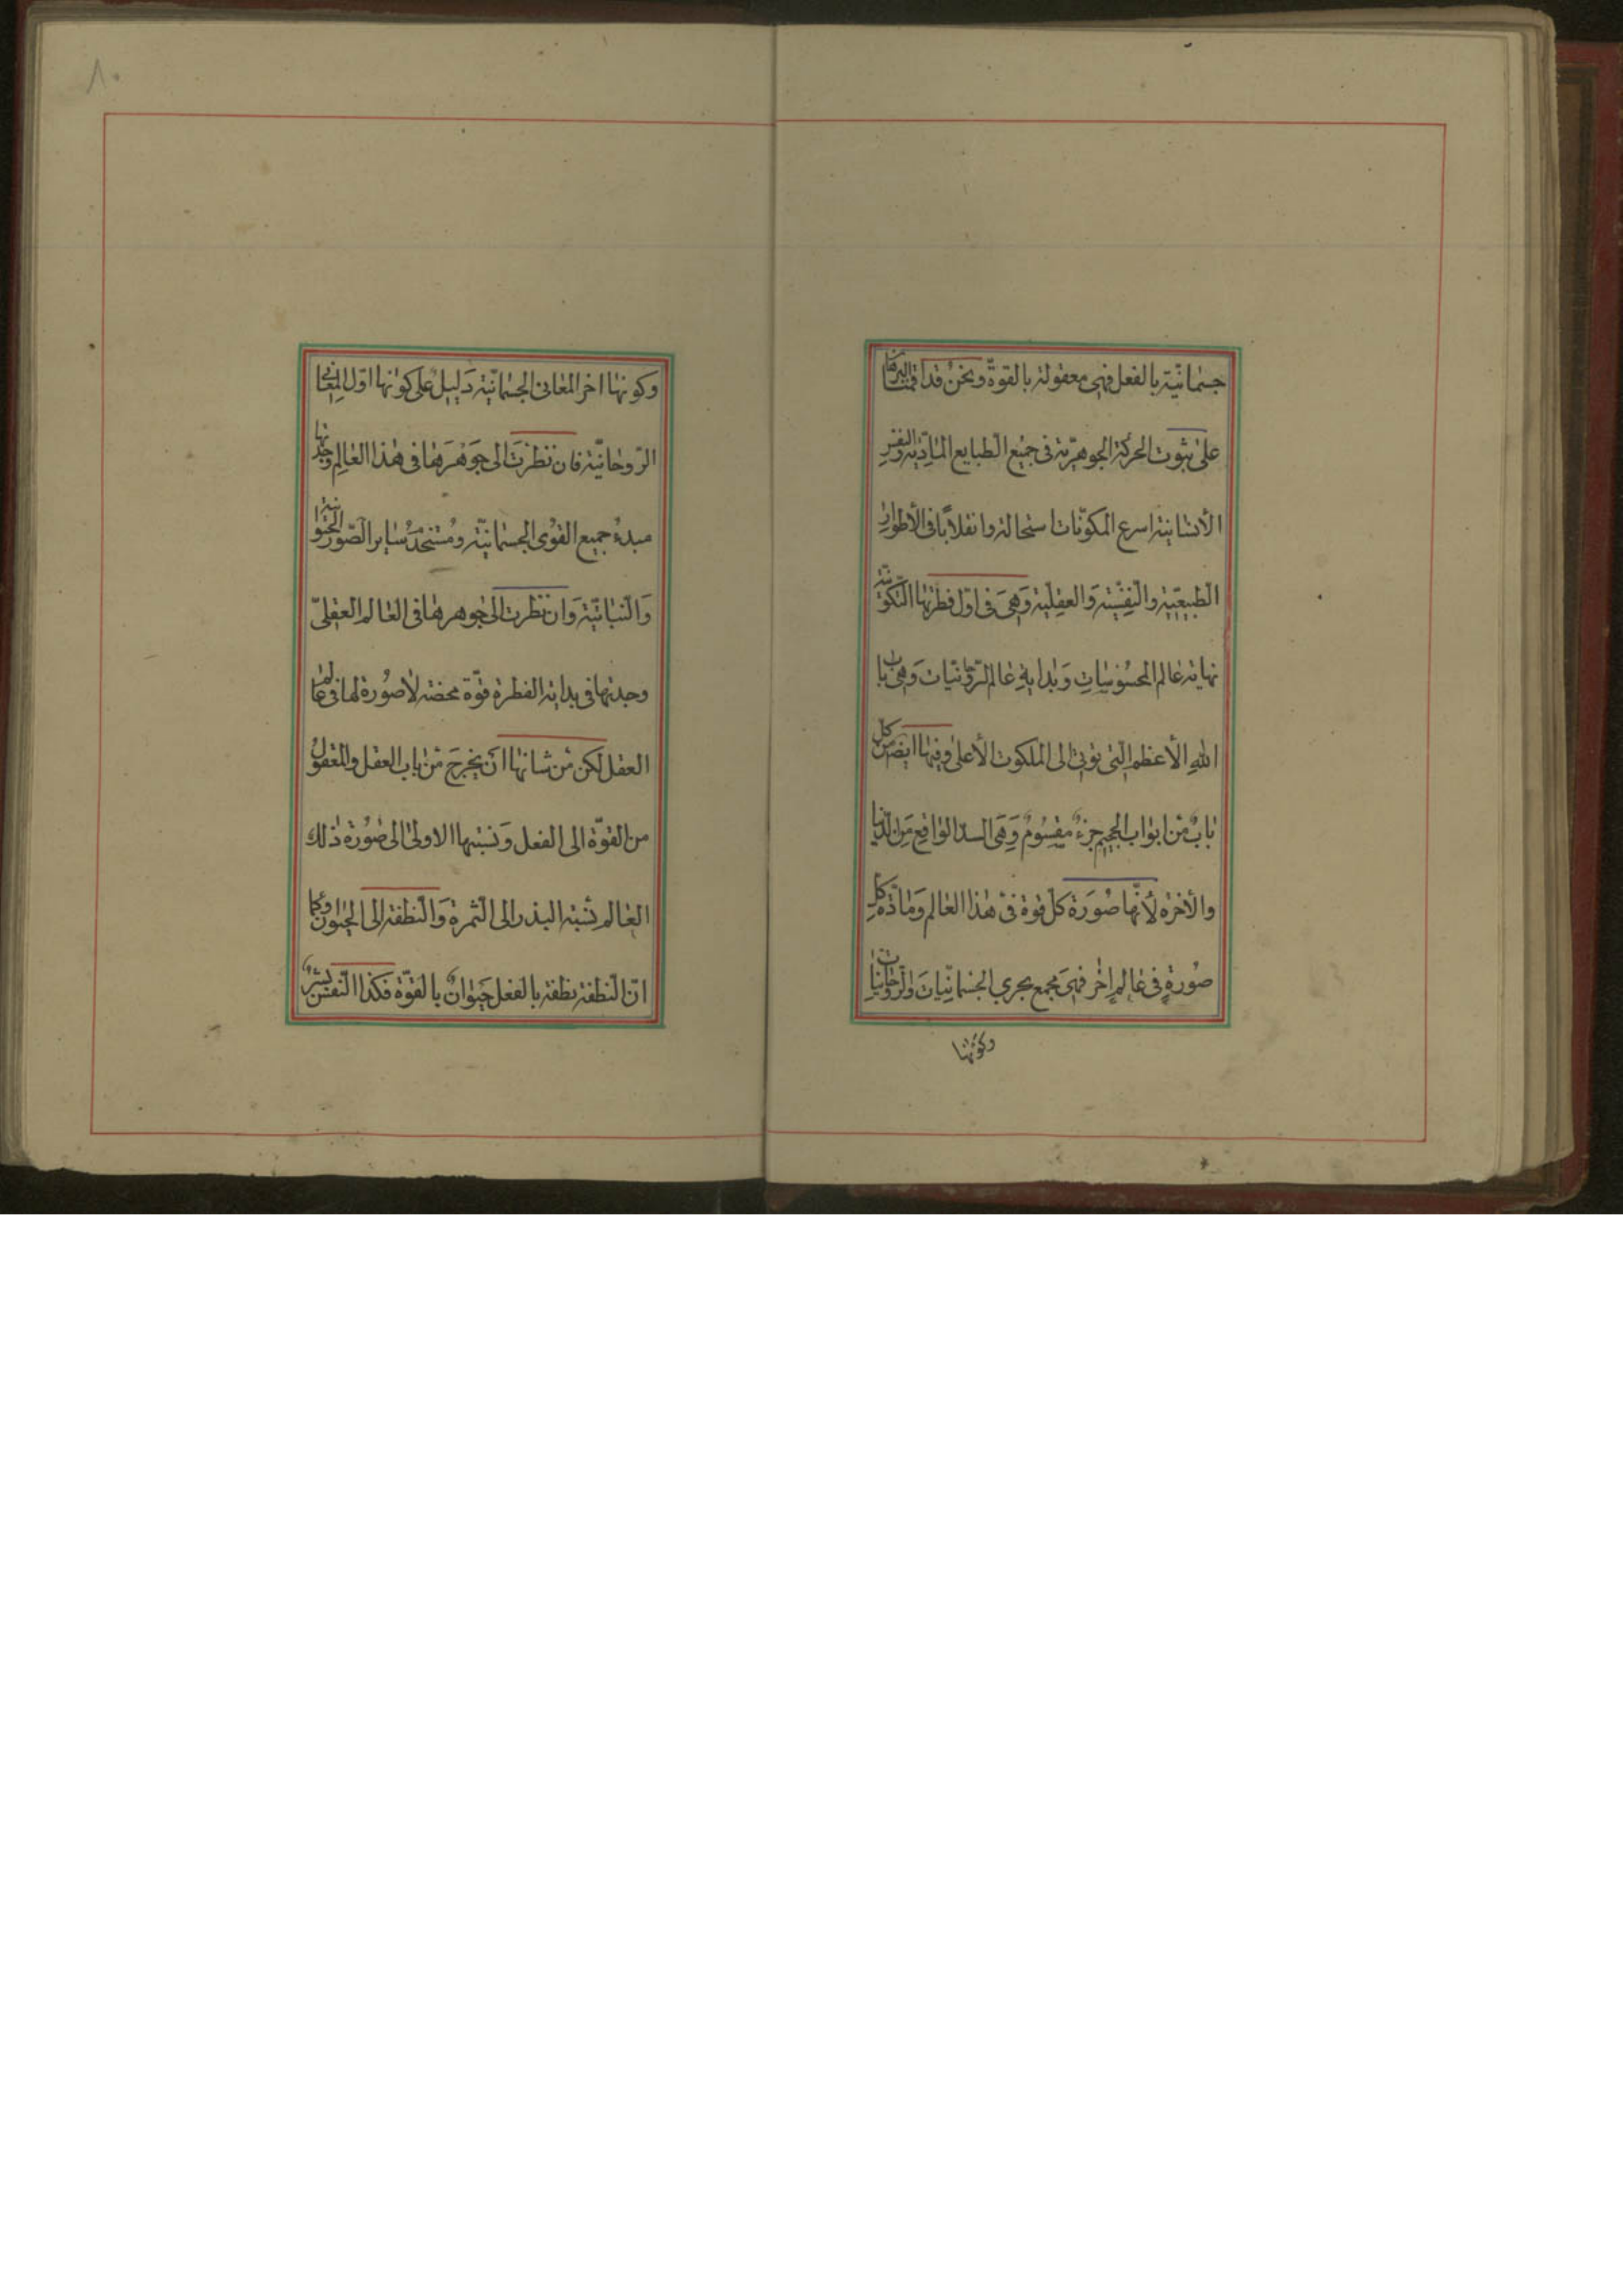 جسمانيّة بالفعل فهى معقولة بالقوّة ونحن قد اقمنا البرهان
على ثبوت الحركة الجوهريّة فى جميع الطبايع الماديّة والنفس
الأنسانية اسرع المكوّنات استحالة وانقلاباً فى الأطوار
الطبيعيّة والنفسيّة والعقليّة وهى فى اوّل فطرتها التكونية
نهاية عالم المحسوسيات وبداية عالم الروحانيّات وهى باب
الله الأعظم التى يؤتى الى الملكوت الأعلى وفيها ايضا من كل
بابٌ من ابواب الجحيم جزءٌ مقسومٌ وهى السد الواقع من الدنيا
والأخرة لأنّها صورة كلّ قوة فى هذا العالم ومادّة كلّ
صورةٍ فى عالم اخر فهى مجمع بحري الجسمانيّات والروحانيات
وكونها
٨٠
وكونها اخر المعانى الجسمانيّة دليل على كونها اوّل المعانى
الرّوحانيّة فان نظرت الى جوهرها فى هذا العالم وجدتها
مبدء جميع القوى الجسمانيّة ومستخدم ساير الصّور الحيوانية
والنباتيّة وان نظرت الى جوهرها فى العالم العقلىّ
وجدتها فى بداية الفطرة قوّة محضة لا صورة لها فى عالم
العقل لكن من شانها ان يخرج من باب العقل والمعقول
من القوّة الى الفعل ونسبتها الاولى الى صورة ذلك
العالم نسبة البذر الى الثمرة والنطفة الى الحيوان وكما
انّ النطفة نطفة بالفعل حيوانٌ بالقوّة فكذا النفس بشرٌ